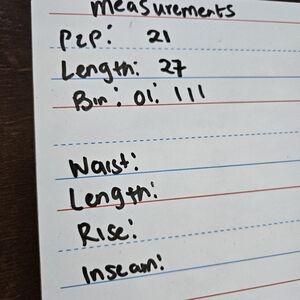 measurements
P2P: 21
Length: 27
Bin: 01: 111
Waist:
Length:
Rise:
Inseam: